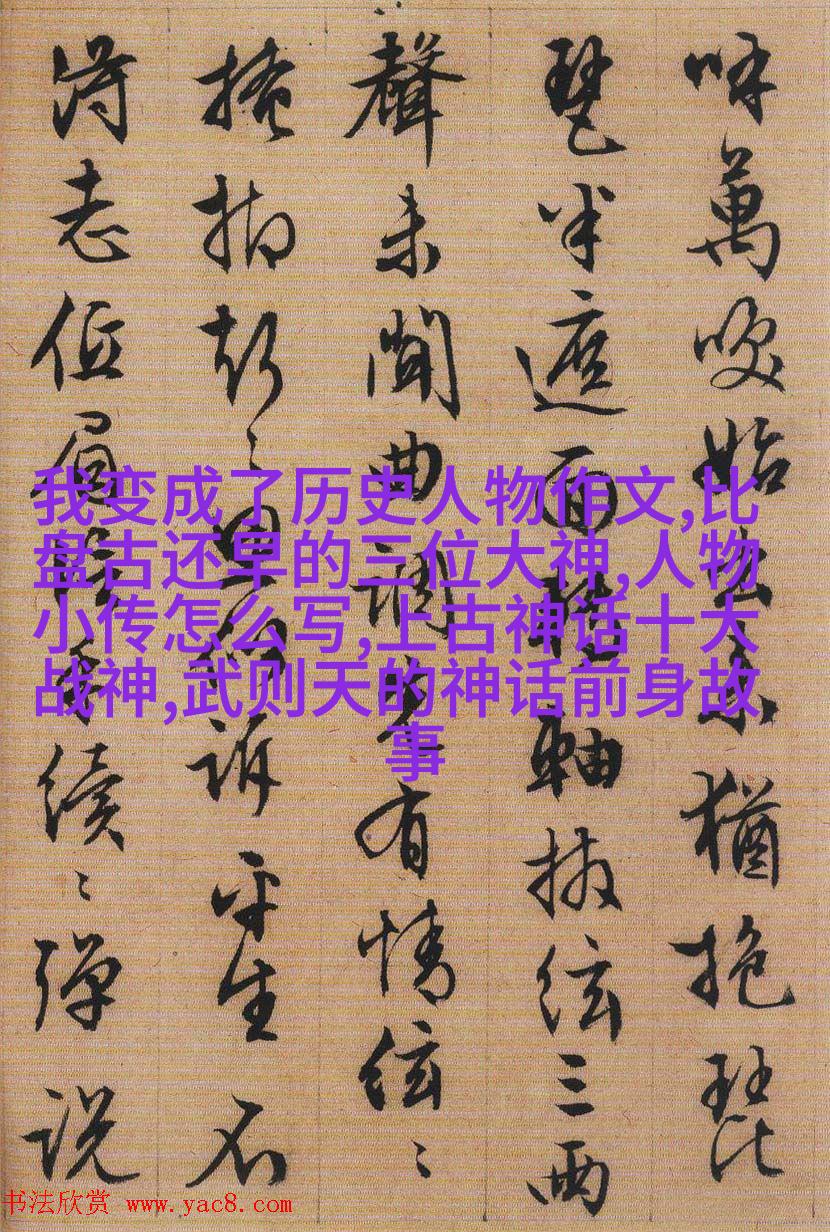 呼萬喚始出来猶抱琵
琶半遮面轉軸撥絃三兩
聲未聞曲調先有情絃〻
掩抑聲〻思似訴平生不
得志低眉信手續〻彈説
我变成了历史人物作文,比
盘古还早的三位大神,人物
小传怎么写,上古神话十大
战神,武则天的神话前身故
事
书法欣赏 www.yac8.com